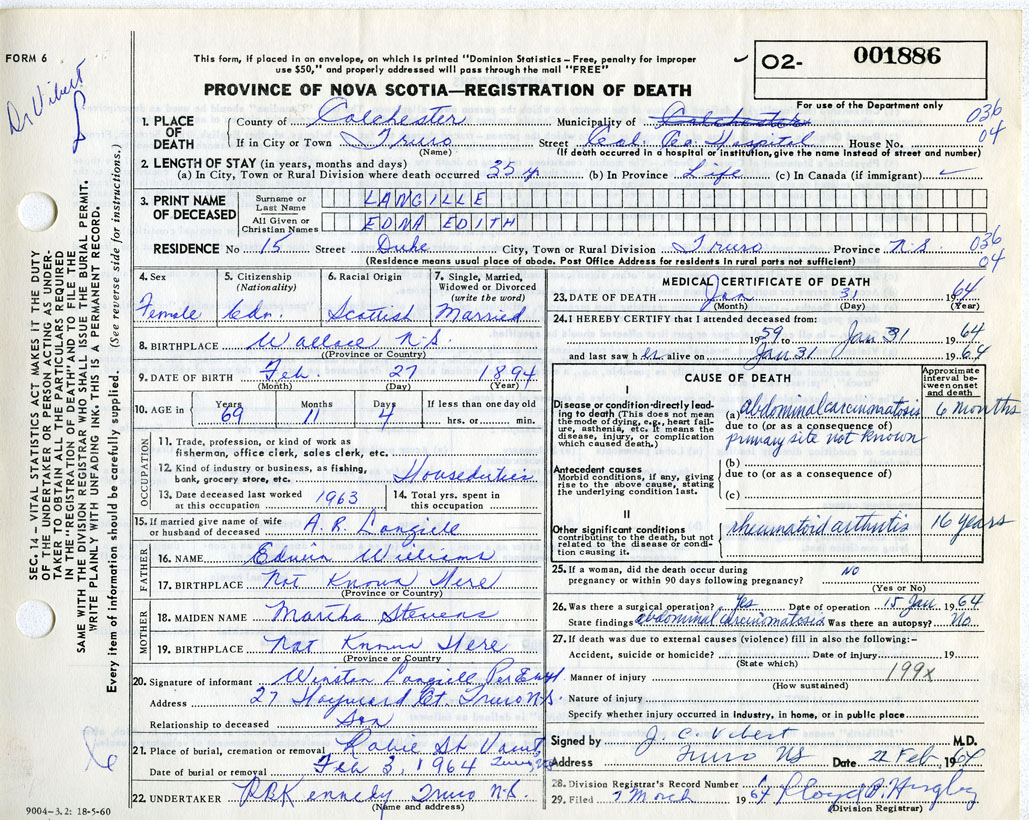 FORM 6
Dr Vibert
This form, if placed in an envelope, on which is printed "Dominion Statistics – Free, penalty for improper
use $50," and properly addressed will pass through the mail "FREE"
02-
001886
For use of the Department only
PROVINCE OF NOVA SCOTIA—REGISTRATION OF DEATH
1. PLACE OF DEATH
County of Colchester Municipality of Colchester 036
If in City or Town Truro Street Col. Co. Hospital House No. 04
(Name) (If death occurred in a hospital or institution, give the name instead of street and number)
2. LENGTH OF STAY (in years, months and days)
(a) In City, Town or Rural Division where death occurred 35 y (b) In Province Life (c) In Canada (if immigrant)
3. PRINT NAME OF DECEASED
Surname or Last Name LANGILLE
All Given or Christian Names EDNA EDITH
RESIDENCE No 15 Street Duke City, Town or Rural Division Truro Province N.S. 036
04
(Residence means usual place of abode. Post Office Address for residents in rural parts not sufficient)
4. Sex
Female
5. Citizenship
(Nationality)
Cdn.
6. Racial Origin
Scottish
7. Single, Married,
Widowed or Divorced
(write the word)
Married
8. BIRTHPLACE Wallace N.S.
(Province or Country)
9. DATE OF BIRTH Feb. 27 1894
(Month) (Day) (Year)
10. AGE in Years Months Days If less than one day old
69 11 4 hrs. or min.
OCCUPATION
11. Trade, profession, or kind of work as
fisherman, office clerk, sales clerk, etc.
12. Kind of industry or business, as fishing,
bank, grocery store, etc. Houseduties
13. Date deceased last worked
at this occupation 1963
14. Total yrs. spent in
this occupation
15. If married give name of wife
or husband of deceased A. R. Langille
FATHER
16. NAME Edwin Williams
17. BIRTHPLACE Not Known Here
(Province or Country)
MOTHER
18. MAIDEN NAME Martha Stevens
19. BIRTHPLACE Not Known Here
(Province or Country)
20. Signature of informant Winston Langille Per
Address 27 Hayward Ct. Truro N.S.
Relationship to deceased Son
21. Place of burial, cremation or removal Robie St Vault
Truro, NS
Date of burial or removal Feb 3, 1964
22. UNDERTAKER R.B. Kennedy Truro N.S.
(Name and address)
9004-3.2: 18-5-60
MEDICAL CERTIFICATE OF DEATH
23. DATE OF DEATH Jan 31 1964
(Month) (Day) (Year)
24. I HEREBY CERTIFY that I attended deceased from:
1959 to Jan 31 1964
and last saw her alive on Jan 31 1964
CAUSE OF DEATH
Approximate
interval be-
tween onset
and death
I
Disease or condition directly lead-
ing to death (This does not mean
the mode of dying, e.g., heart fail-
ure, asthenia, etc. It means the
disease, injury, or complication
which caused death.)
(a) abdominal carcinomatosis 6 months
due to (or as a consequence of)
primary site not known
Antecedent causes
Morbid conditions, if any, giving
rise to the above cause, stating
the underlying condition last.
(b)
due to (or as a consequence of)
(c)
II
Other significant conditions
contributing to the death, but not
related to the disease or condi-
tion causing it.
rheumatoid arthritis 16 years
25. If a woman, did the death occur during
pregnancy or within 90 days following pregnancy? NO
(Yes or No)
26. Was there a surgical operation? Yes Date of operation 15 Jan. 1964
State findings abdominal carcinomatosis Was there an autopsy? No.
27. If death was due to external causes (violence) fill in also the following:–
Accident, suicide or homicide? Date of injury 19
(State which)
Manner of injury 199x
(How sustained)
Nature of injury
Specify whether injury occurred in industry, in home, or in public place
Signed by J. C. Vibert M.D.
Address Truro NS Date 22 Feb 1964
28. Division Registrar's Record Number
29. Filed 7 March 1964 Lloyd
(Division Registrar)
SEC. 14 – VITAL STATISTICS ACT MAKES IT THE DUTY
OF THE UNDERTAKER OR PERSON ACTING AS UNDER-
TAKER TO OBTAIN ALL THE PARTICULARS REQUIRED
IN THE "REGISTRATION OF DEATH" AND TO FILE THE
SAME WITH THE DIVISION REGISTRAR WHO SHALL ISSUE THE BURIAL PERMIT.
WRITE PLAINLY WITH UNFADING INK. THIS IS A PERMANENT RECORD.
Every item of information should be carefully supplied. (See reverse side for instructions.)